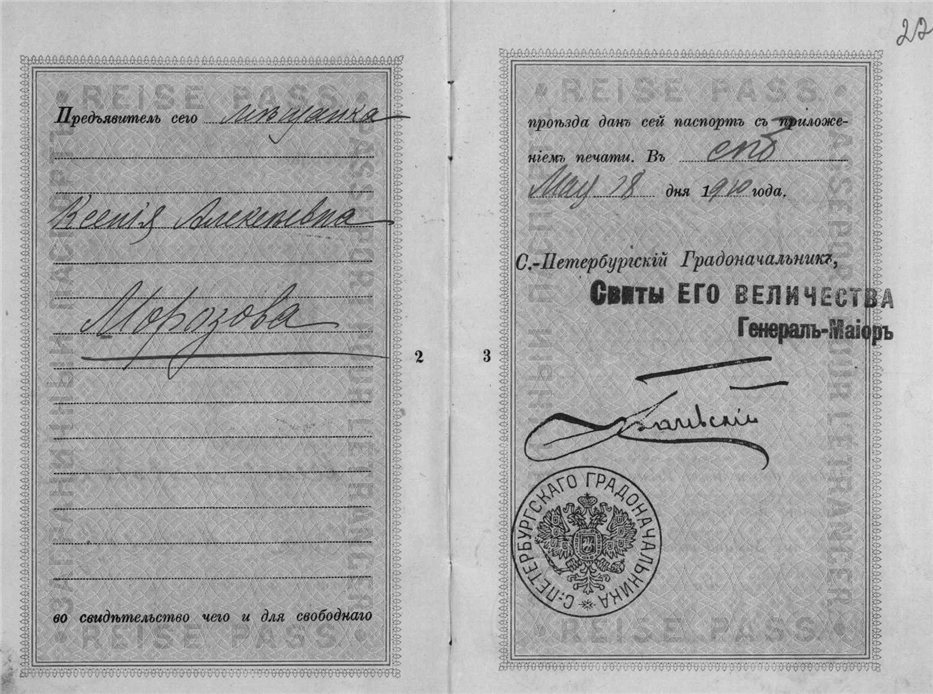 22
REISE PASS.
ЗАГРАНИЧНЫЙ ПАСПОРТЪ
PASSEPORT POUR L'ÉTRANGER
Предъявитель сего
Ксенія Алексѣевна
Морозова
во свидѣтельство чего и для свободнаго
REISE PASS.
2
3
REISE PASS.
ЗАГРАНИЧНЫЙ ПАСПОРТЪ
PASSEPORT POUR L'ÉTRANGER
проѣзда данъ сей паспортъ съ приложе-
ніемъ печати. Въ спб
Мая 18 дня 1910 года.
С.-Петербургскій Градоначальникъ,
Свиты ЕГО ВЕЛИЧЕСТВА
Генералъ-Маіоръ
С.-ПЕТЕРБУРГСКАГО ГРАДОНАЧАЛЬНИКА
REISE PASS.